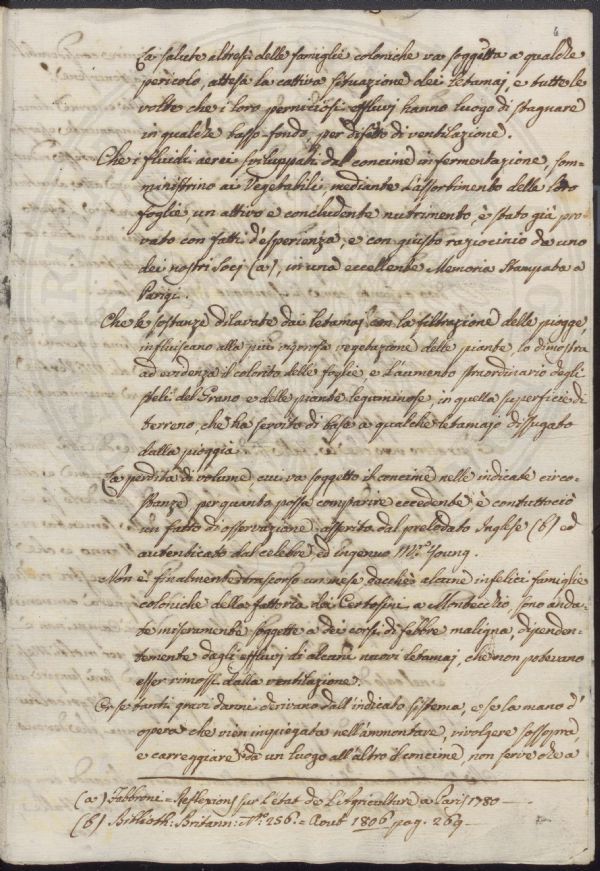 6
La salute altresì delle famiglie coloniche va soggetta a qualche
pericolo, attesa la cattiva situazione dei letamaj, e tutte le
volte che i loro perniciosi effluvj hanno luogo di stagnare
in qualche basso-fondo, per difetto di ventilazione.
Che i fluidi aerei sviluppati dal concime in fermentazione, som-
ministrino ai Vegetabili, mediante l'assorbimento delle loro
foglie un attivo e concludente nutrimento, è stato già pro-
vato con fatti d'esperienza, e con giusto raziocinio da uno
dei nostri Socj (a), in una eccellente Memoria stampata a
Parigi.
Che le sostanze dilavate dai letamaj con la filtrazione delle piogge,
influiscano alla più vigorosa vegetazione delle piante, lo dimostra
ad evidenza il colorito delle foglie, e l'aumento straordinario degli
steli del Grano e delle piante leguminose, in quella superficie di
terreno, che ha servito di base a qualche letamajo dissugato
dalla pioggia.
La perdita di volume cui va soggetto il concime nelle indicate circo-
stanze, per quanto possa comparire eccedente, è contuttociò
un fatto di osservazione asserito dal prelodato Inglese (b) ed
autenticato dal celebre, ed ingenuo Mr. Young.
Non è finalmente trascorso un mese dacchè alcune infelici famiglie
coloniche della fattoria dei Certosini a Montecchio, sono anda-
te miseramente soggette a dei corsi di febbre maligna, dipenden-
temente dagli effluvj di alcuni nuovi letamaj, che non potevano
esser rimossi dalla ventilazione.
Or se tanti gravi danni derivano dall'indicato sistema, e se la mano d'
opera che vien impiegata nell'ammontare, rivolgere sossopra,
e carreggiare da un luogo all'altro il concime, non serve che a
(a) Fabbroni = Reflexions sur l'état de L'Agriculture a Paris 1780 —
(b) Biblioth: Britann: No. 256. = Aout 1806 pag. 269 —